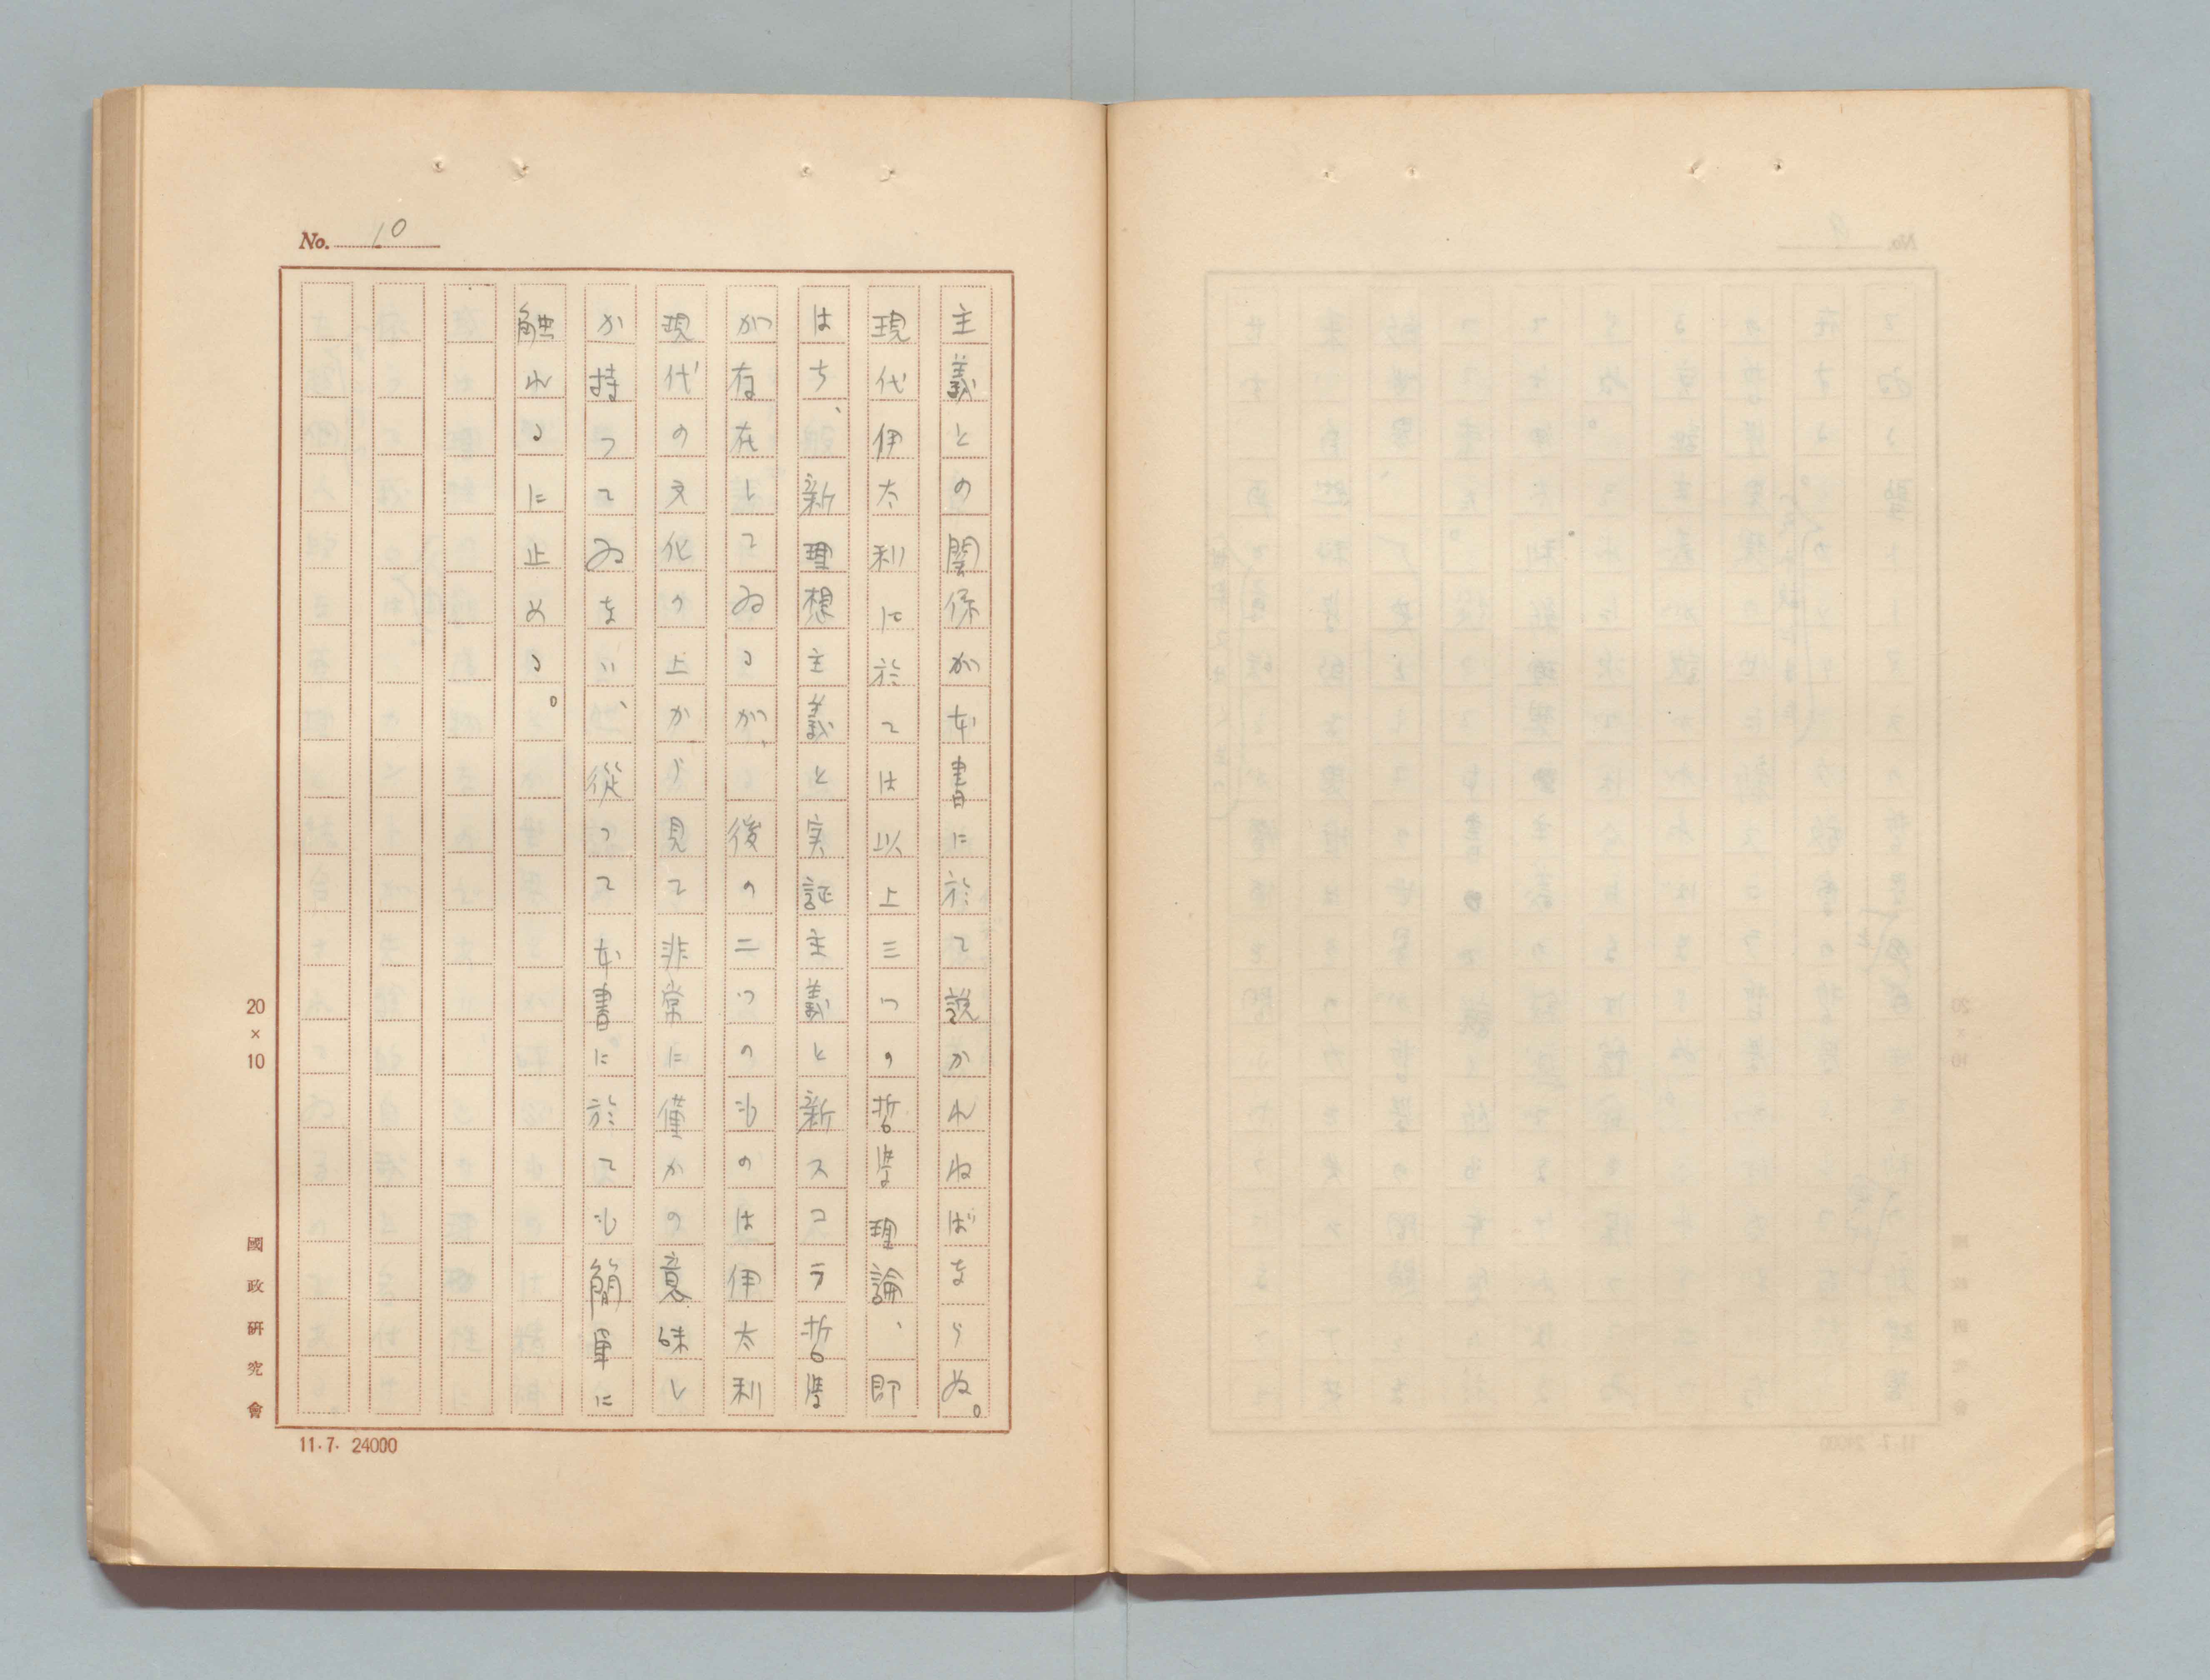 No. 10
主義との関係が本書に於て説かれねばならぬ。
現代伊太利に於ては以上三つの哲学理論、即
はち、新理想主義と実証主義と新スコラ哲学
が存在してゐるが、後の二つのものは伊太利
現代の文化の上から見て非常に僅かの意味し
か持つてゐない、従つて本書に於ても簡単に
触れるに止める。
20×10
國政研究會
11.7. 24000